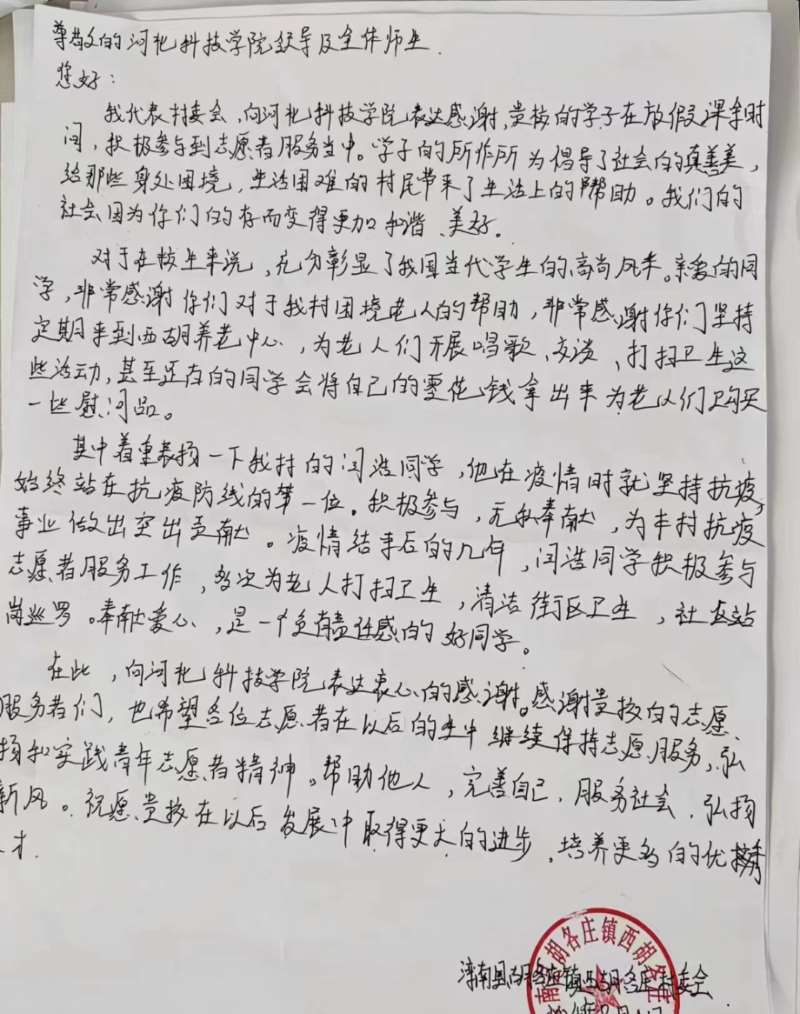 尊敬的河北科技学院领导及全体师生.
您好：
我代表村委会，向河北科技学院表达感谢，贵校的学子在放假课余时
间，积极参与到志愿者服务当中。学子的所作所为倡导了社会的真善美，
给那些身处困境，生活困难的村民带来了生活上的帮助。我们的
社会因为你们的存而变得更加和谐、美好.
对于在校生来说，充分彰显了我国当代学生的高尚风采。亲爱的同
学，非常感谢你们对于我村困境老人的帮助，非常感谢你们坚持
定期来到西胡养老中心，为老人们开展唱歌、交谈、打扫卫生这
些活动，甚至还有的同学会将自己的零花钱拿出来为老人们购买
一些慰问品。
其中着重表扬一下我村的闫浩同学，他在疫情时就坚持抗疫，
始终站在抗疫防线的第一位。积极参与，无私奉献，为丰村抗疫
事业做出突出贡献。疫情结束后的几年，闫浩同学积极参与
志愿者服务工作，多次为老人打扫卫生，清洁街区卫生，社区站
岗巡罗。奉献爱心，是一个负有责任感的好同学。
在此，向河北科技学院表达衷心的感谢。感谢贵校的志愿
服务者们，也希望各位志愿者在以后的生中继续保持志愿服务，弘
扬和实践青年志愿者精神。帮助他人，完善自己，服务社会，弘扬
新风。祝愿贵校在以后发展中取得更大的进步，培养更多的优秀
才.
滦南县胡各庄镇西胡各庄村委会
南县胡各庄镇西胡各庄